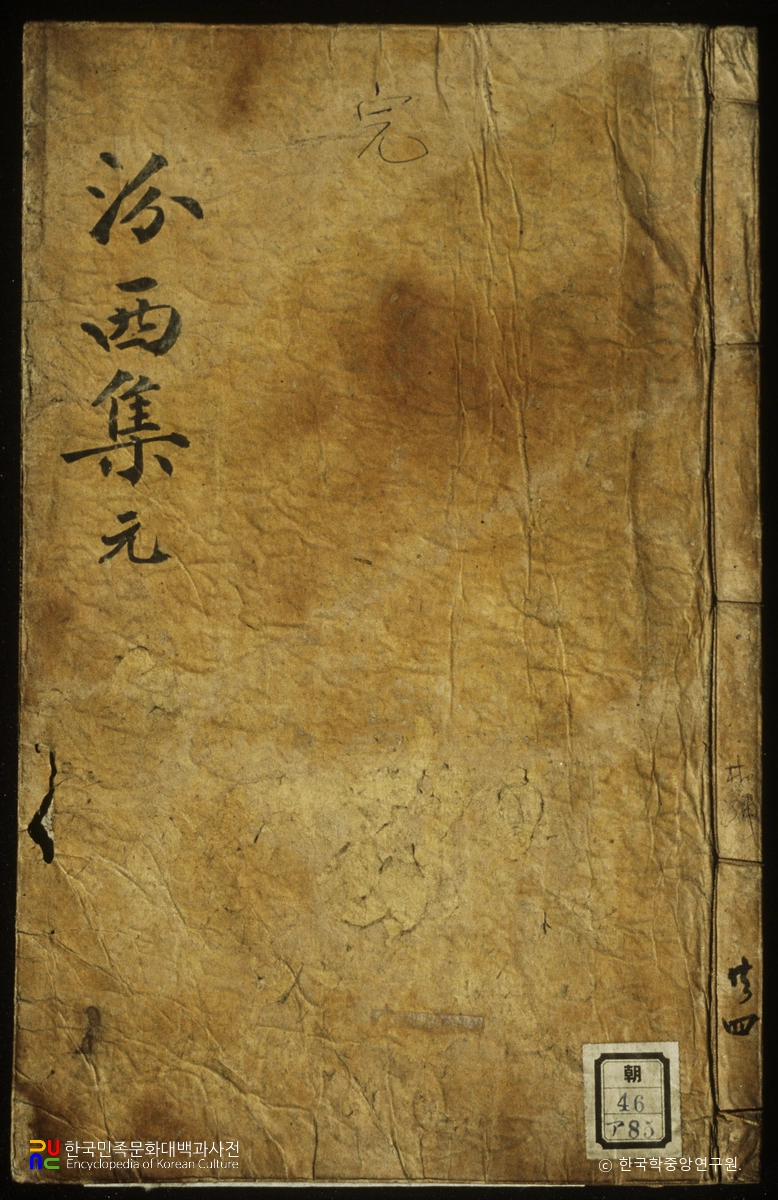 完
汾西集 元
共四
朝
46
한국민족문화대백과사전
Encyclopedia of Korean Culture
ⓒ 한국학중앙연구원